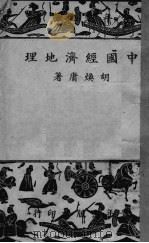 中國經濟地理
胡煥庸著
印行